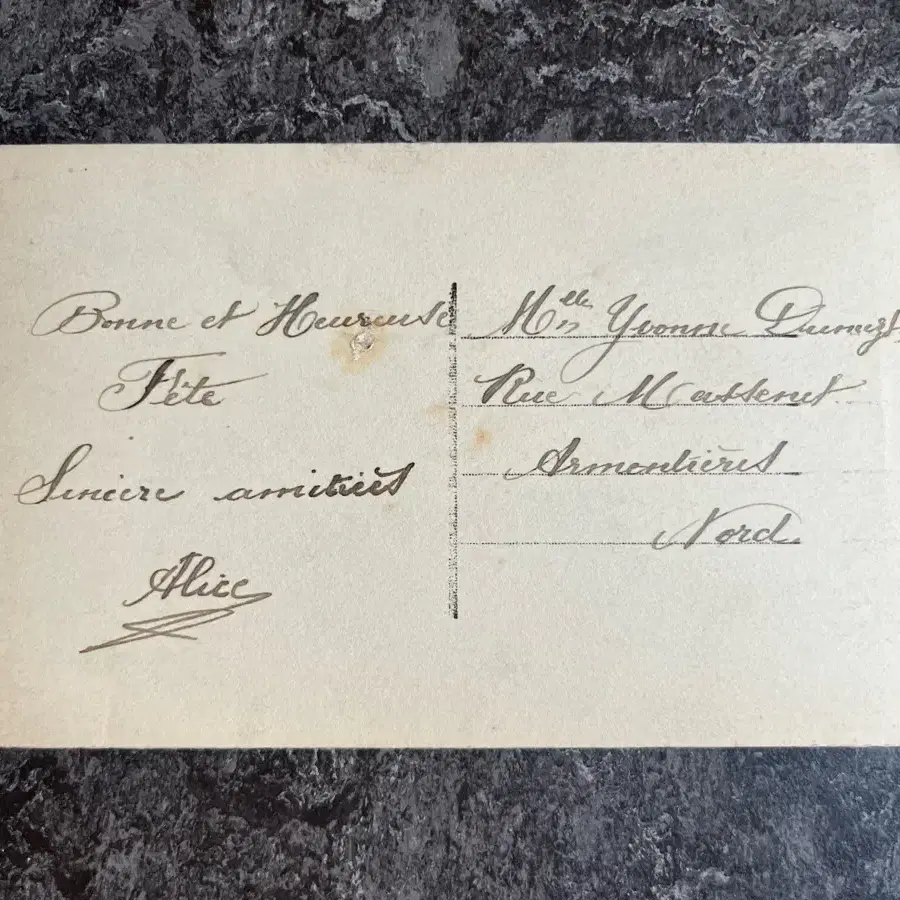 Bonne et Heureuse
Fête
Sincère amitiés
Alice
Melle Yvonne
Rue Massenet
Armentières
Nord.